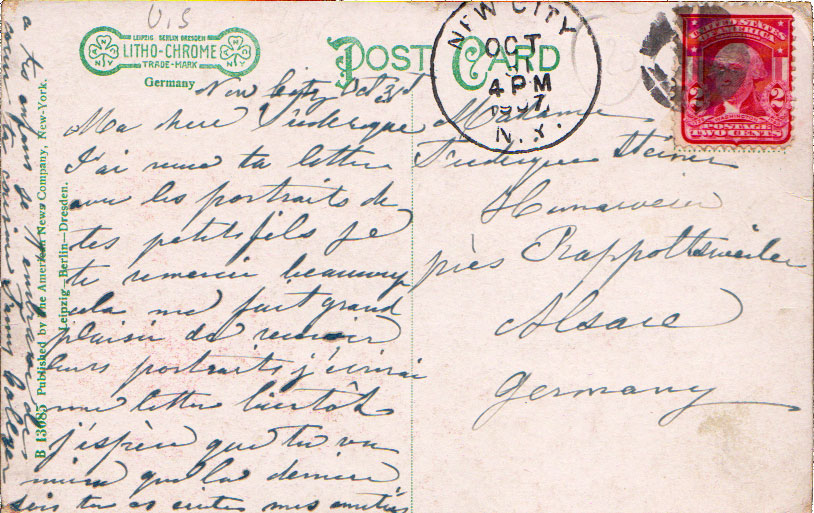 U.S
LEIPZIG BERLIN DRESDEN
LITHO-CHROME
TRADE-MARK
Germany
POST CARD
NEW CITY
OCT
4 PM
1907
N.Y.
UNITED STATES
OF AMERICA
2 2
POSTAGE
TWO CENTS
New City Oct 3rd
Ma chere Frederique
J'ai recue ta lettre
avec les portraits de
tes petits fils je
te remercie beaucoup
cela me fait grand
plaisir de recevoir
leurs portraits j'écrirai
une lettre bientôt
j'espère que tu va
mieux que la derniere
fois tu as écrites mes amitiés
a tes enfants
ta cousine
Madame
Frederique Steiner
Hunaweier
près Rappoltsweiler
Alsace
Germany
B 13085 Published by The American News Company, New-York.
Leipzig–Berlin–Dresden.